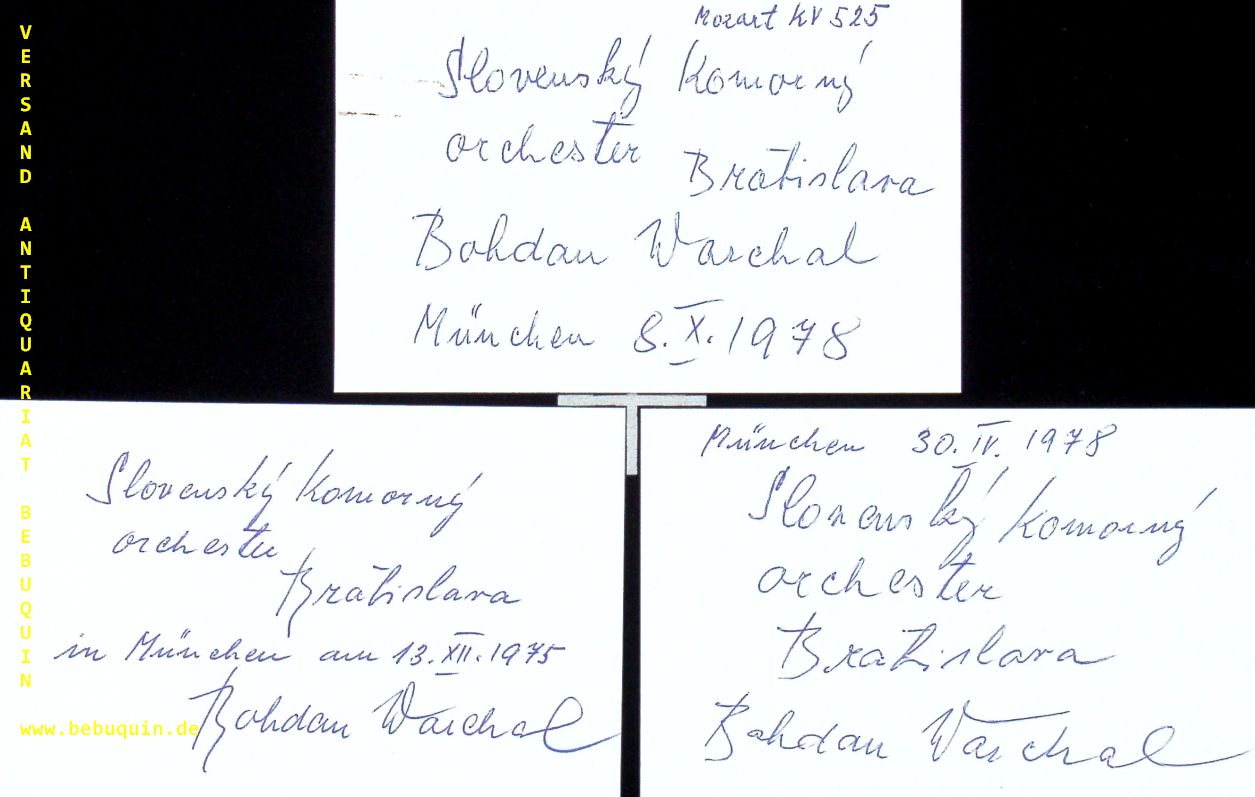 VERSAND ANTIQUARIAT BEBUQUIN
www.bebuquin.de
Mozart KV 525
Slovenský Komorný
orchester
Bratislava
Bohdan Warchal
München 8.X.1978
Slovenský Komorný
orchester
Bratislava
in München am 13.XII.1975
Bohdan Warchal
München 30.IV.1978
Slovenský Komorný
orchester
Bratislava
Bohdan Warchal